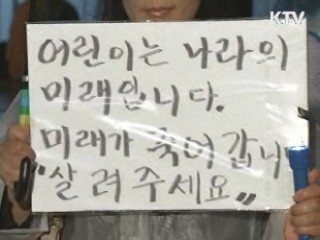 KTV
어린이는 나라의
미래입니다.
미래가 죽어 갑니
"살려주세요"